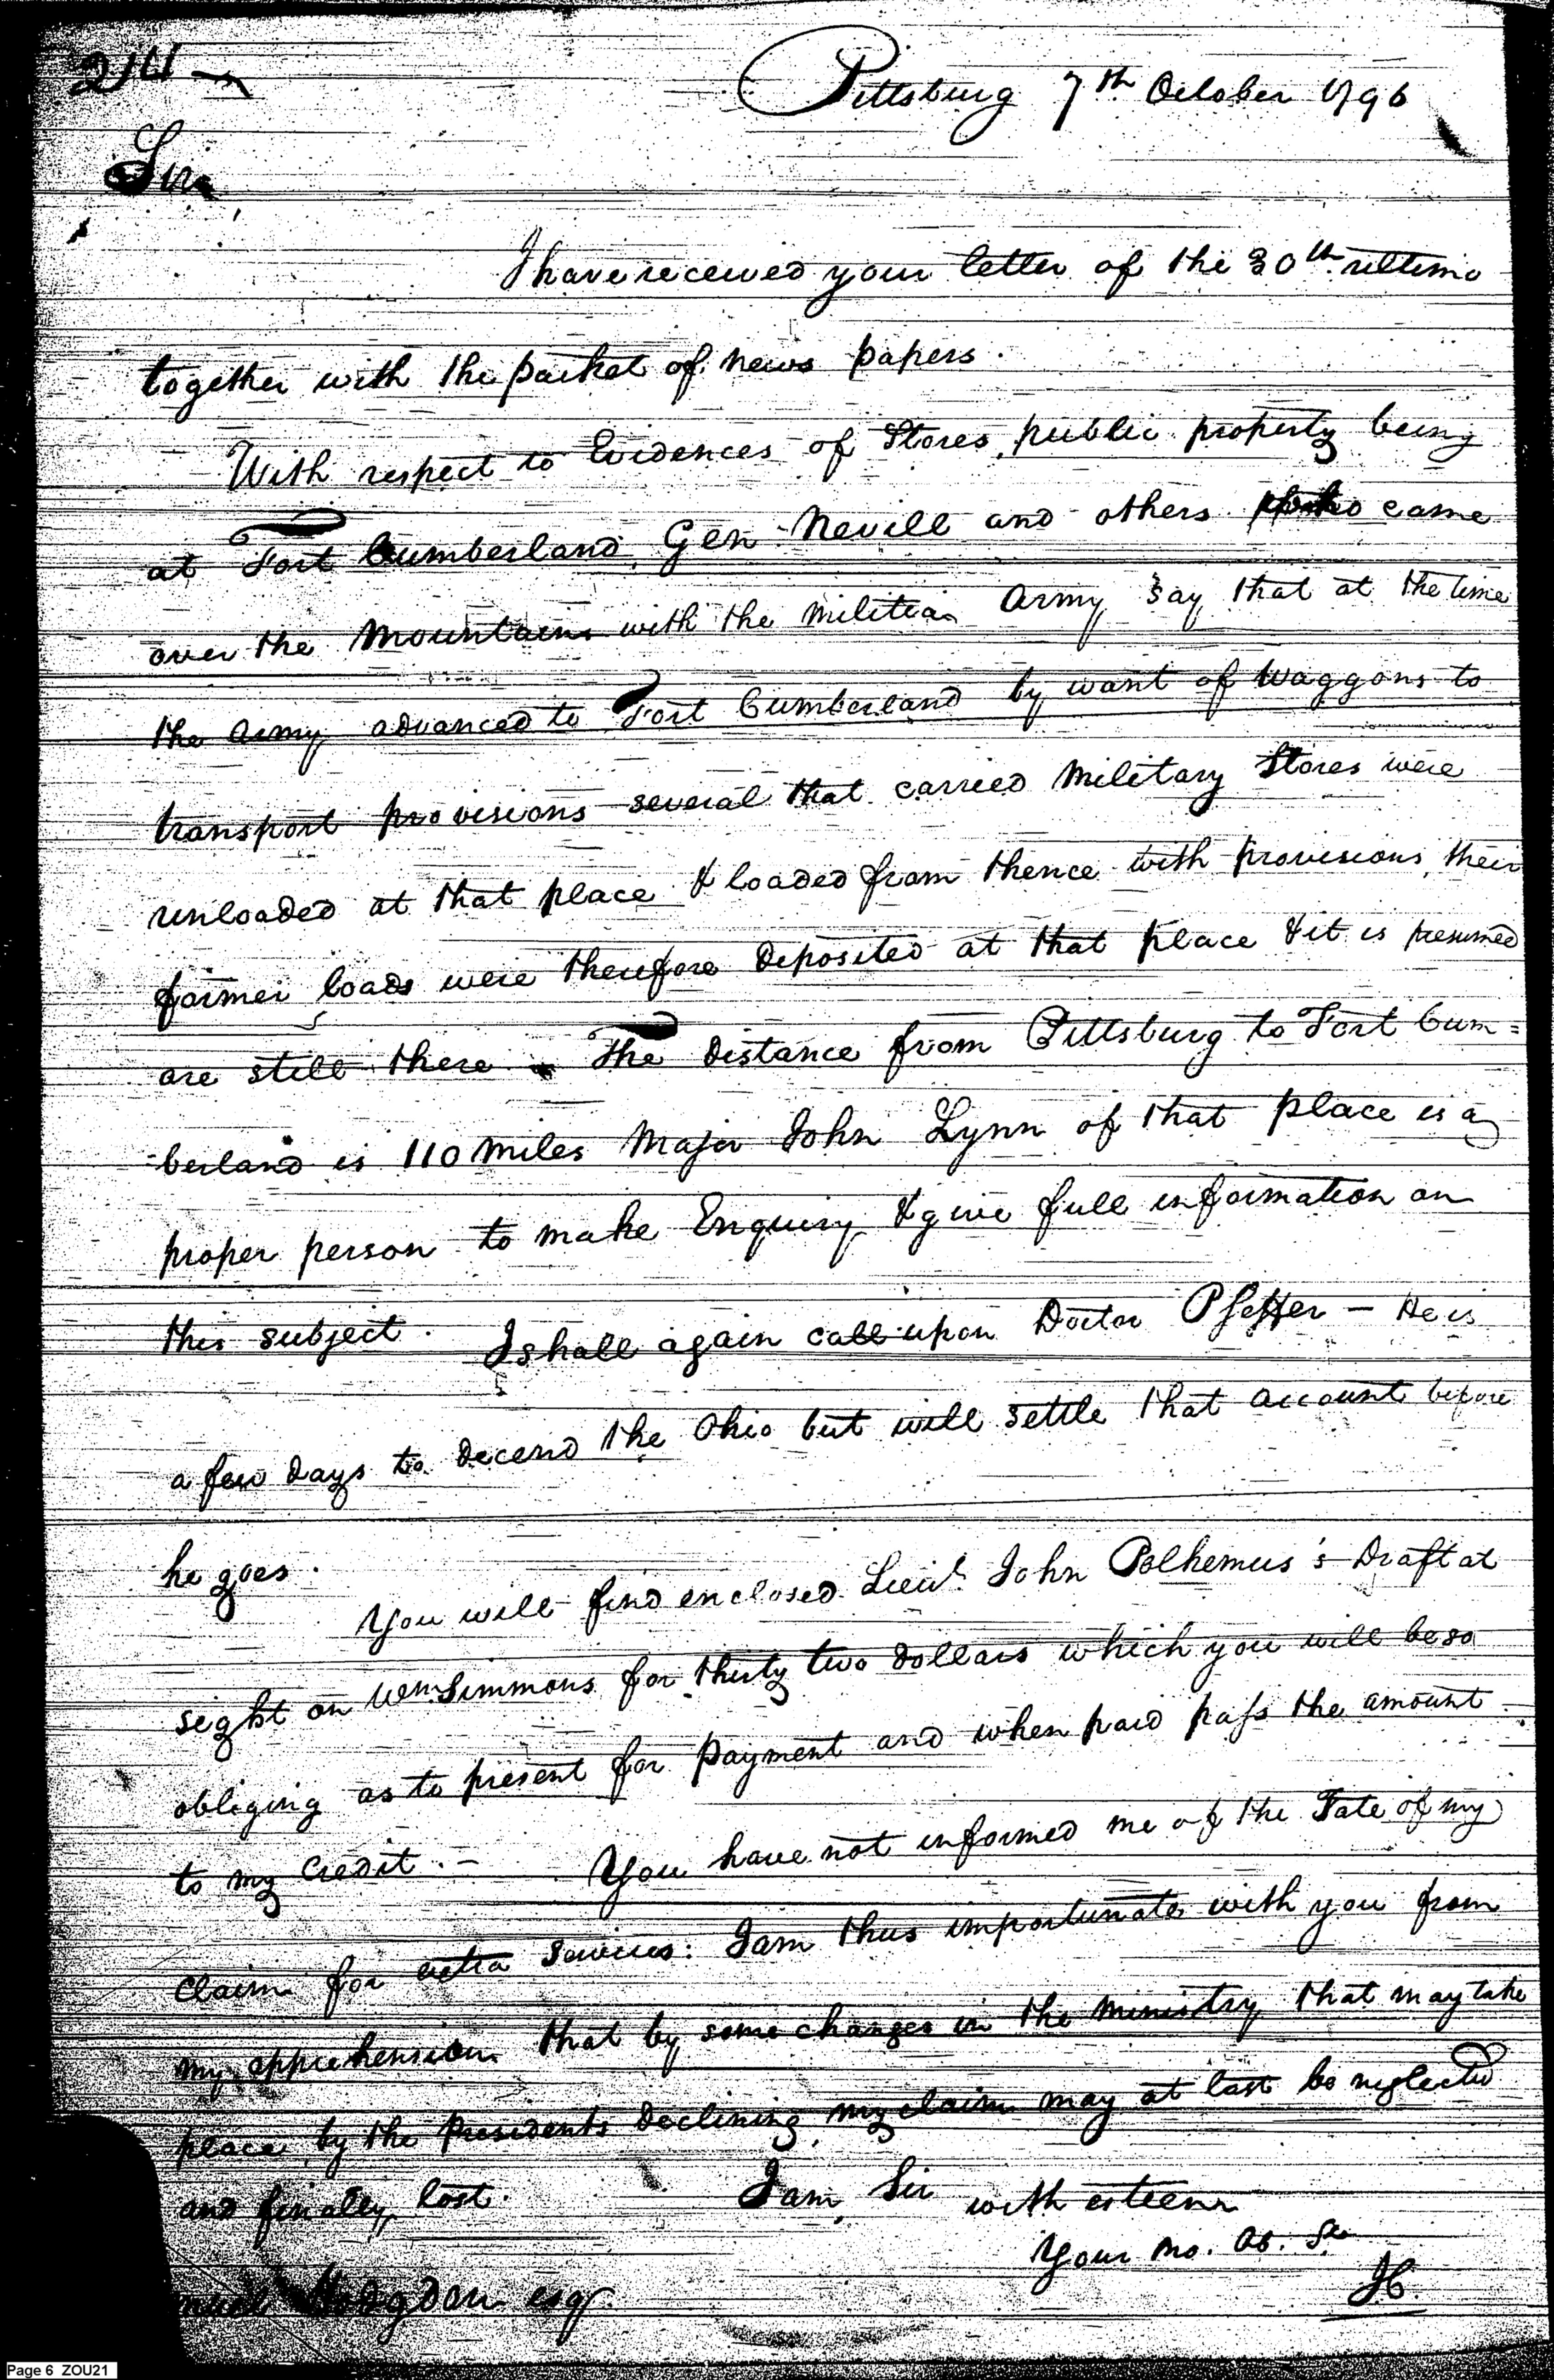 Pittsburg 7th October 1796
Sir
I have received your letter of the 30th ultimo
together with the packet of news papers.
With respect to Evidences of Stores, public property being
at Fort Cumberland, Gen Nevill and others who came
over the Mountains with the militia Army say that at the time
the Army advanced to Fort Cumberland by want of Waggons to
transport provisions several that carried Military Stores were
unloaded at that place & loaded from thence with provisions, their
former loads were therefore deposited at that place & it is presumed
are still there - The distance from Pittsburg to Fort Cum=
-berland is 110 miles Major John Lynn of that place is a
proper person to make Enquiry & give full information on
this subject. I shall again call upon Doctor Pfeffer - He is
a few days to decend the Ohio but will settle that account before
he goes.
You will find enclosed Lieut. John Polhemus's Draft at
sight on Wm Simmons for thirty two dollars which you will be so
obliging as to present for payment and when paid pass the amount
to my Credit. - You have not informed me of the Fate of my
Claim for extra services: I am thus importunate with you from
my apprehension that by some changes in the Ministry that may take
place, by the Presidents declining, my claim may at last be neglected
and finally lost. I am, Sir with esteem
Your Mo. Ob. Se
Hodgdon esqr.
Page 6 ZOU21